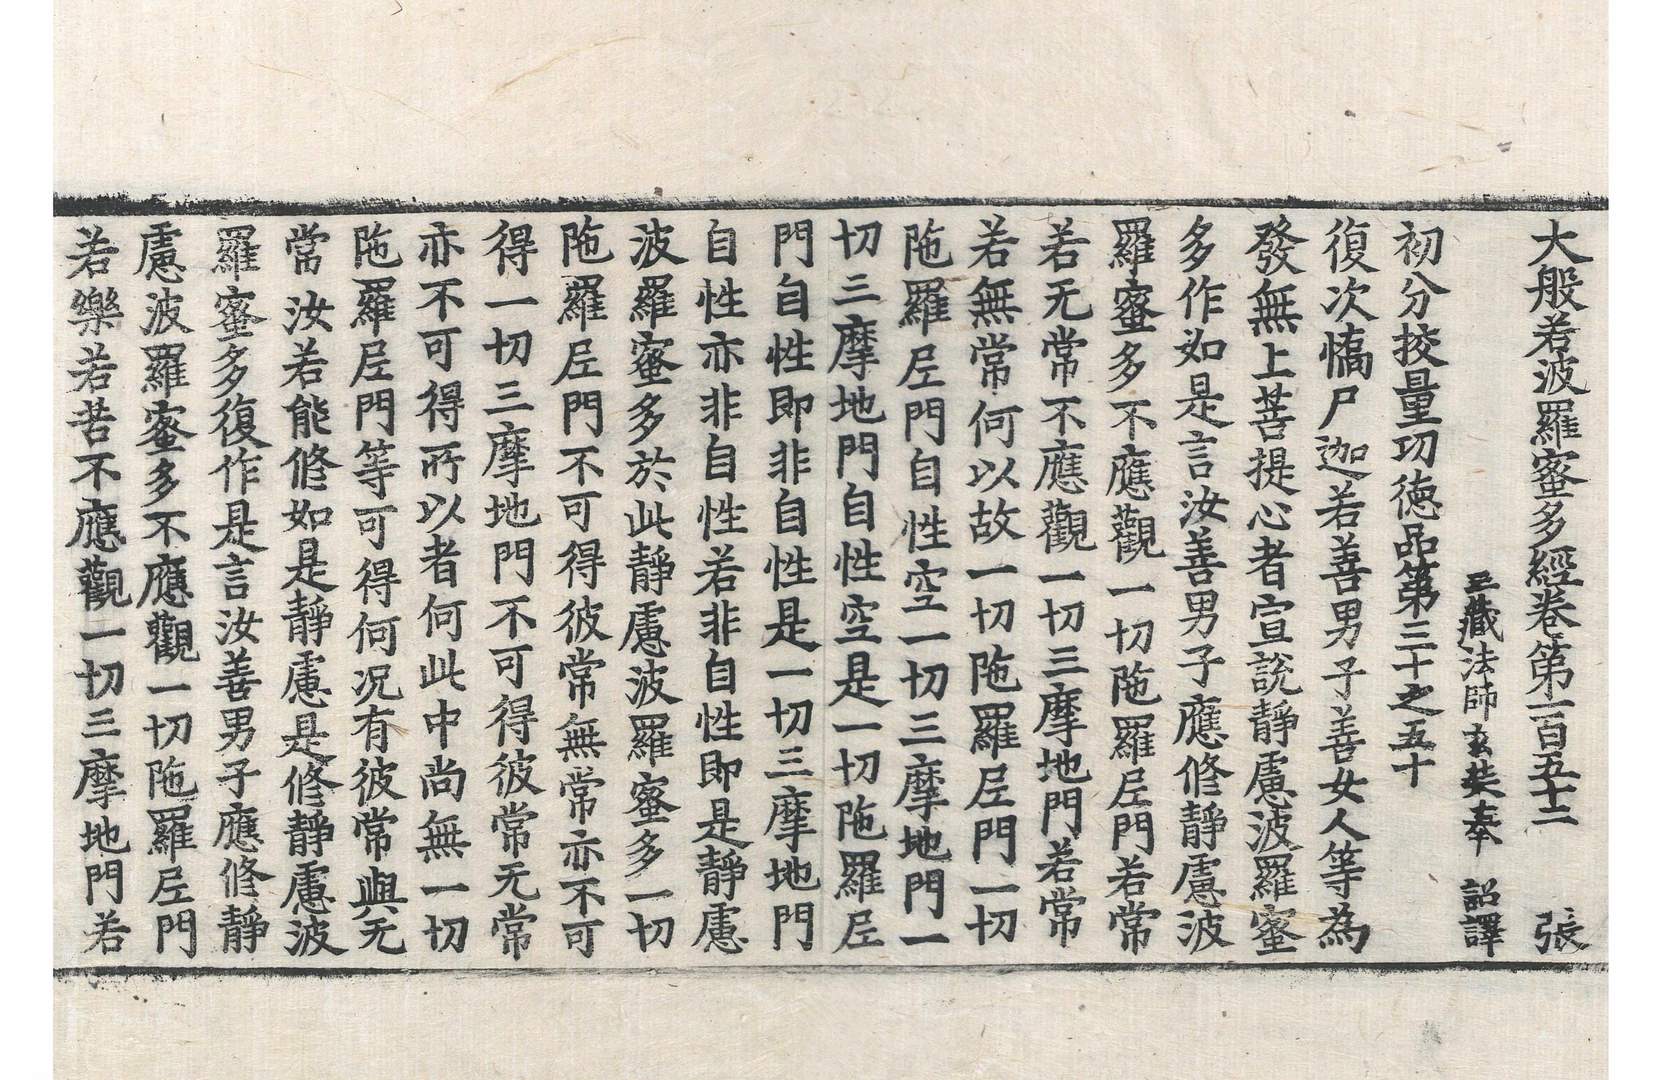 大般若波羅蜜多經卷第一百五十二　張
三藏法師玄奘奉　詔譯
初分挍量功德品第三十之五十
復次憍尸迦若善男子善女人等為
發無上菩提心者宣說靜慮波羅蜜
多作如是言汝善男子應修靜慮波
羅蜜多不應觀一切陁羅尼門若常
若无常不應觀一切三摩地門若常
若無常何以故一切陁羅尼門一切
陁羅尼門自性空一切三摩地門一
切三摩地門自性空是一切陁羅尼
門自性即非自性是一切三摩地門
自性亦非自性若非自性即是靜慮
波羅蜜多於此靜慮波羅蜜多一切
陁羅尼門不可得彼常無常亦不可
得一切三摩地門不可得彼常无常
亦不可得所以者何此中尚無一切
陁羅尼門等可得何況有彼常與无
常汝若能修如是靜慮是修靜慮波
羅蜜多復作是言汝善男子應修靜
慮波羅蜜多不應觀一切陁羅尼門
若樂若苦不應觀一切三摩地門若